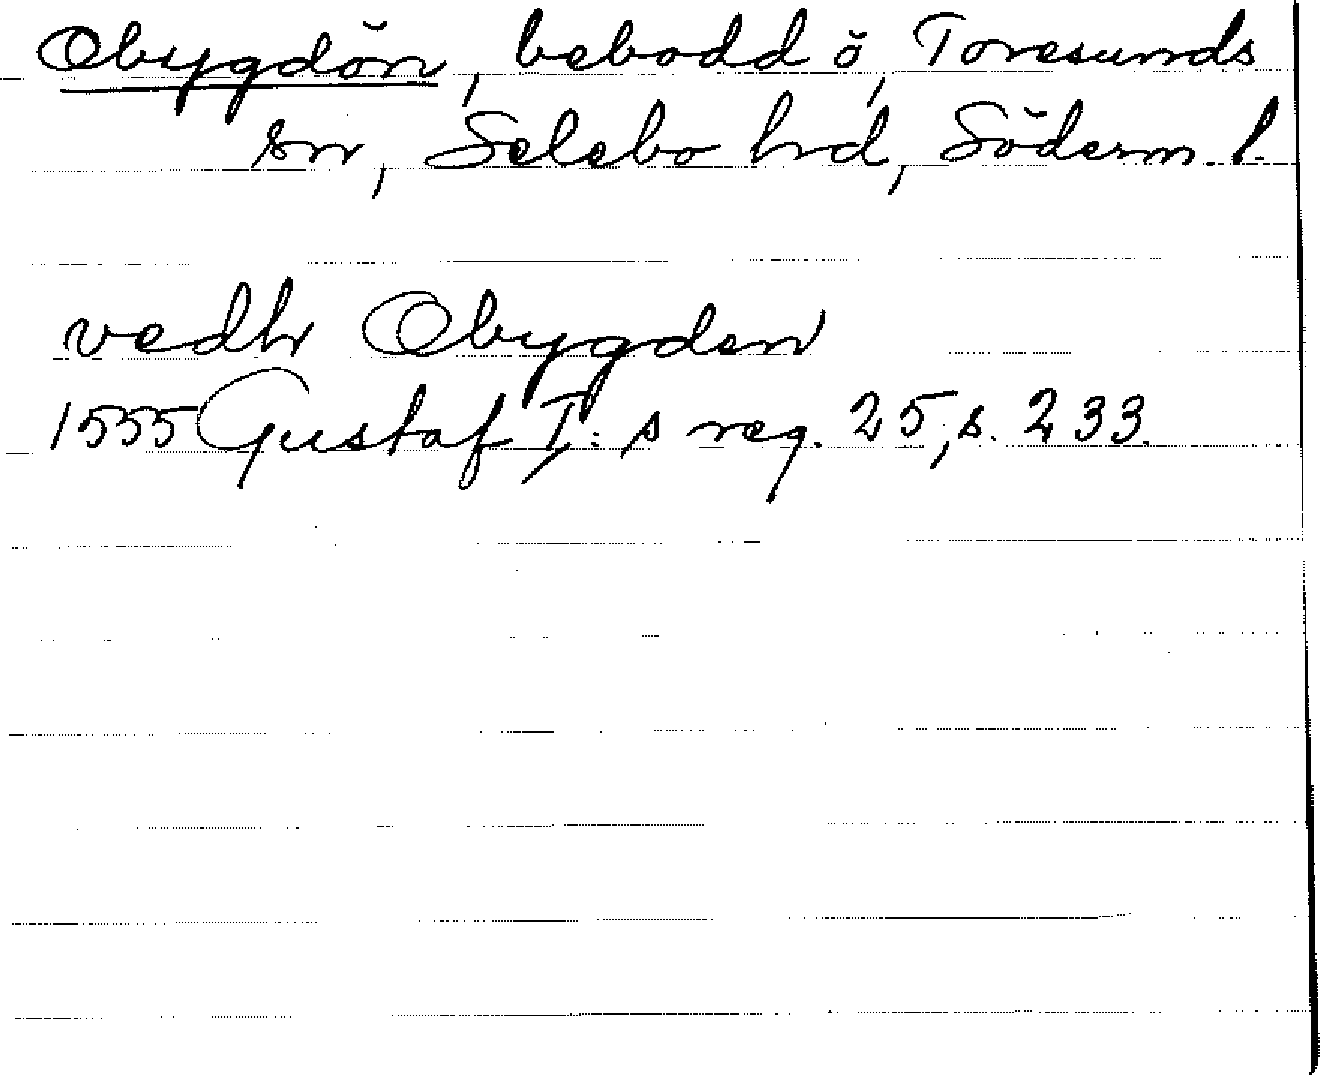 Obygdön, bebodd ö, Toresunds
sn, Selebo hrd, Söderm. l.
vedh Obygden
1555 Gustaf I: s reg. 25, s. 233.